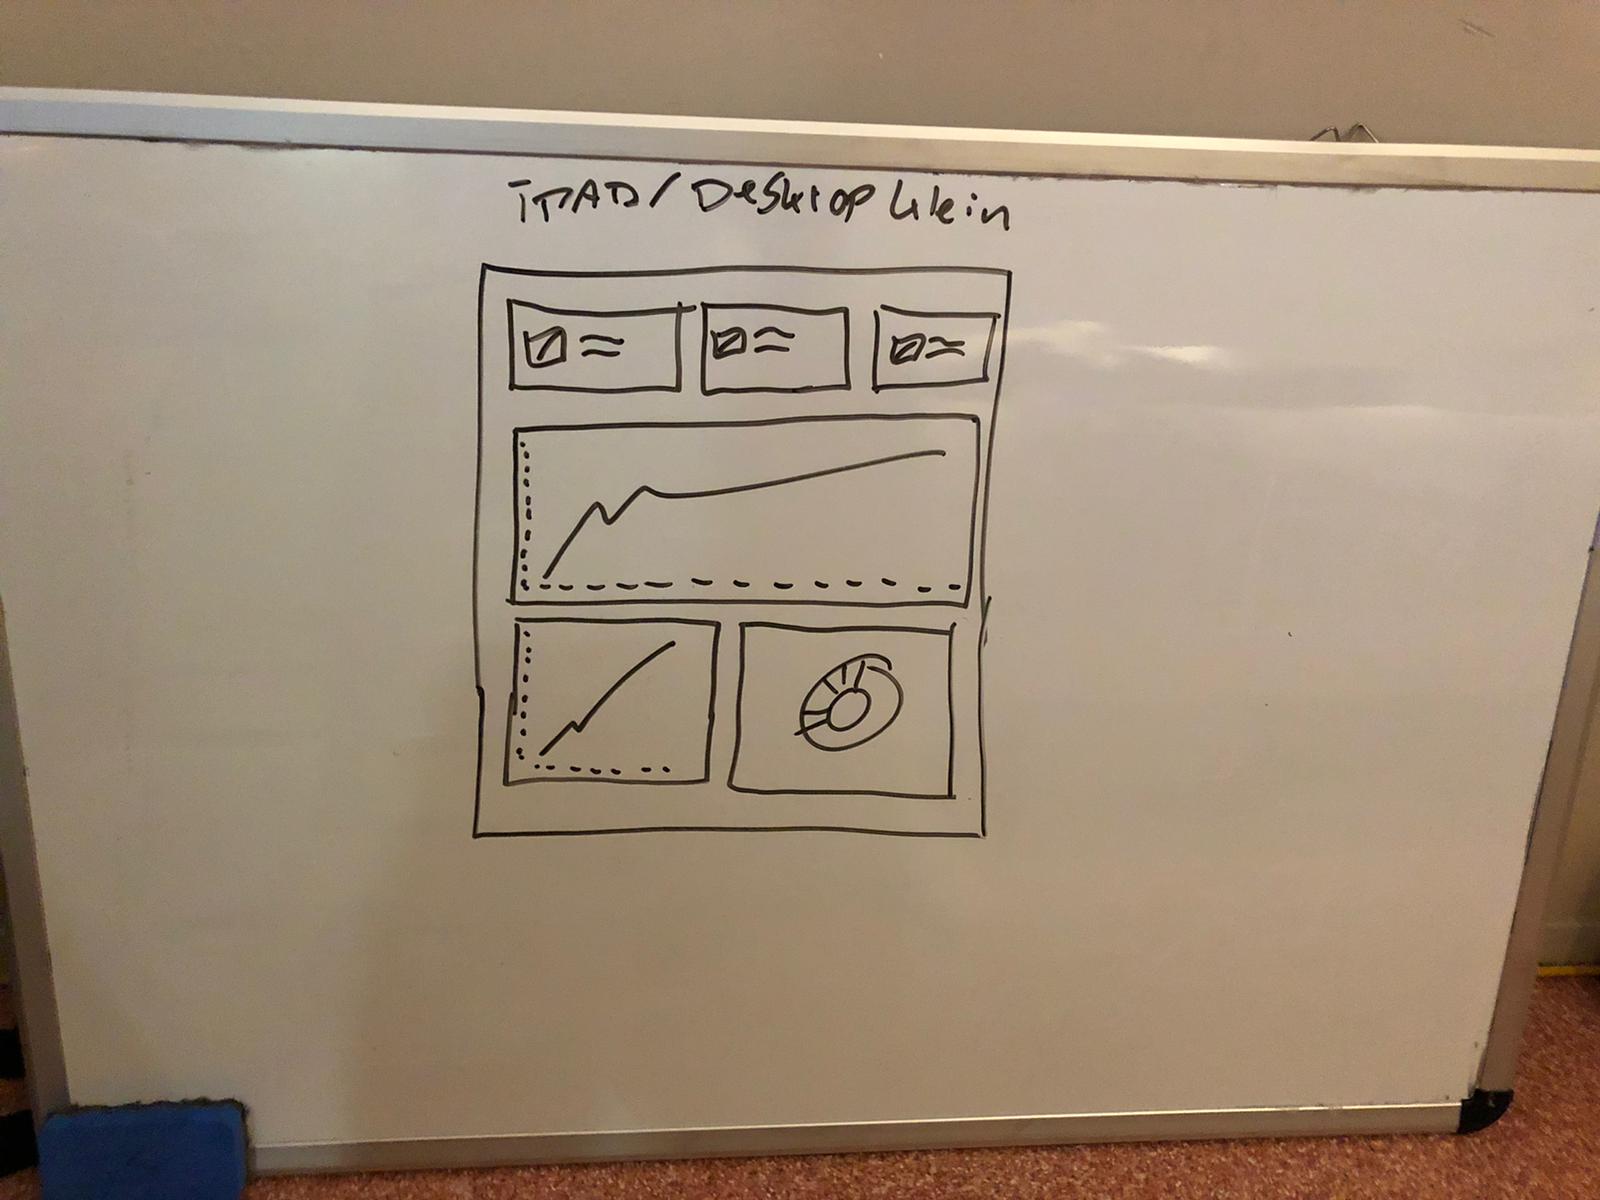 iPAD / Desktop klein